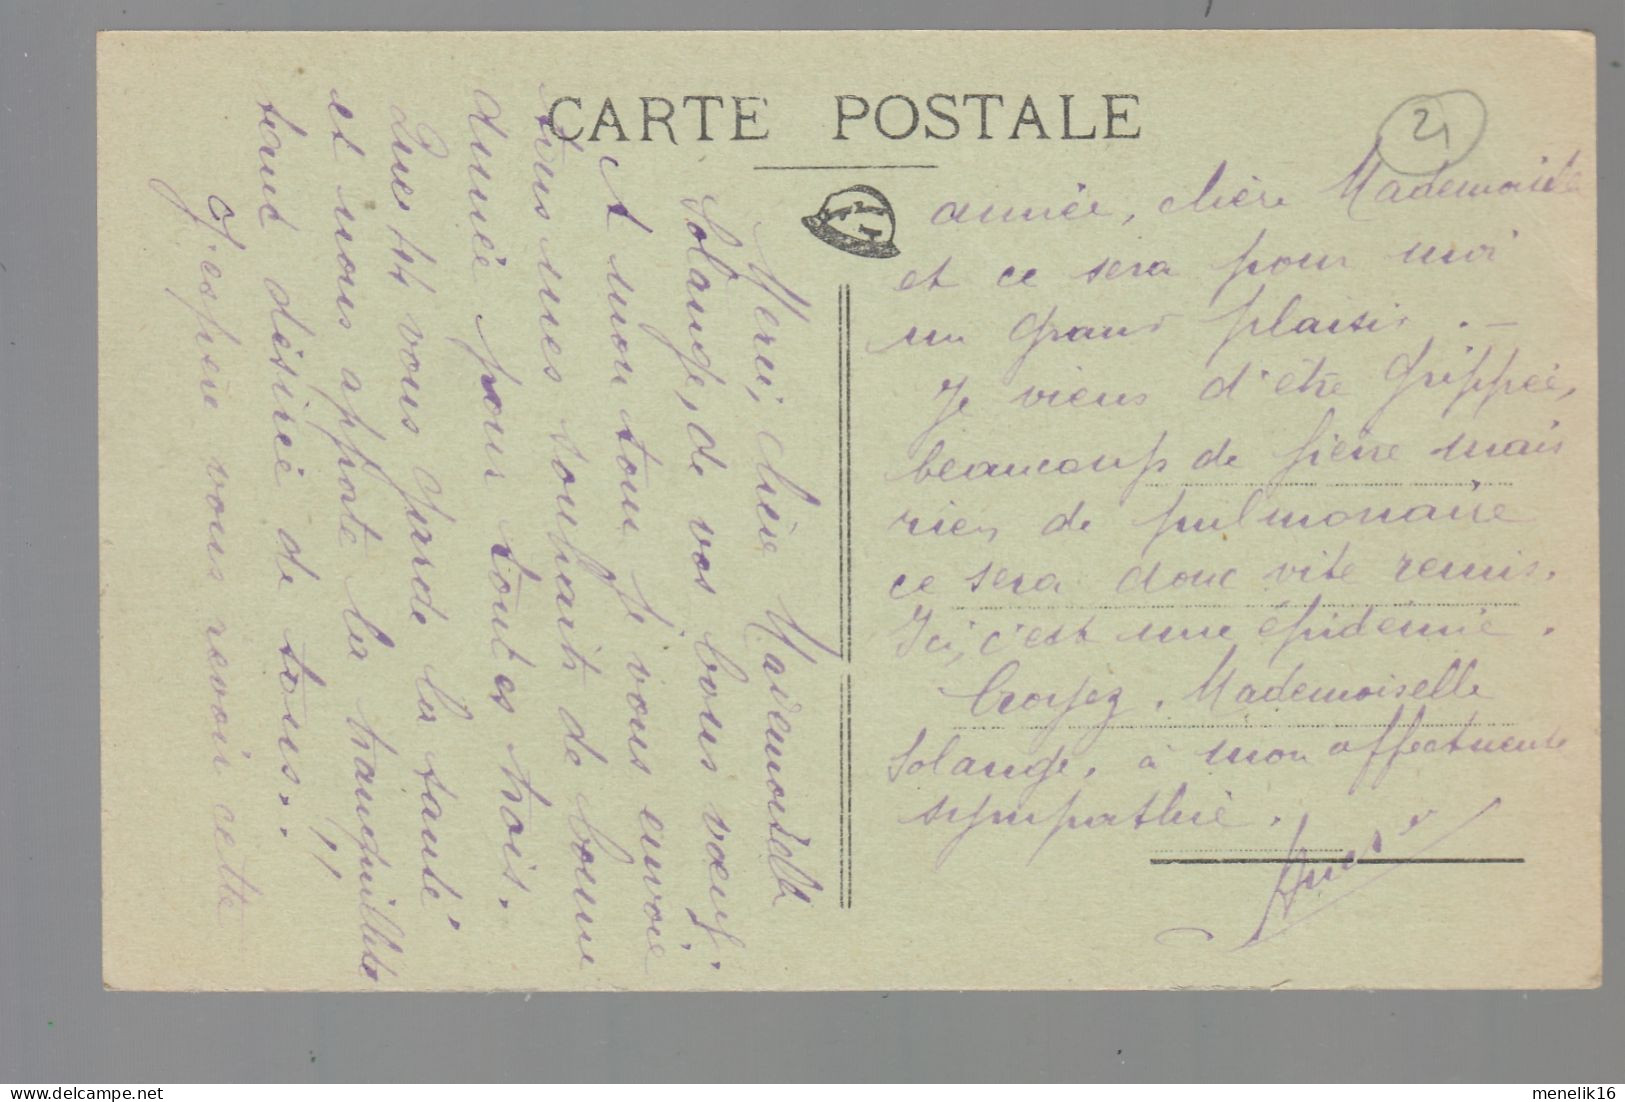 CARTE POSTALE
21
Merci, chère Mademoiselle
Solange, de vos bons vœux.
A mon tour je vous envoie
tous mes souhaits de bonne
année pour toutes trois.
Que 1941 vous garde la santé
et vous apporte la tranquillité
tant désirée de tous.
J'espère vous revoir cette
année, chère Mademoiselle
et ce sera pour moi
un grand plaisir. –
Je viens d'être grippée,
beaucoup de fièvre mais
rien de pulmonaire
ce sera donc vite remis.
Ici, c'est une épidémie.
Croyez, Mademoiselle
Solange, à mon affectueuse
sympathie.
delcampe.net
menelik16